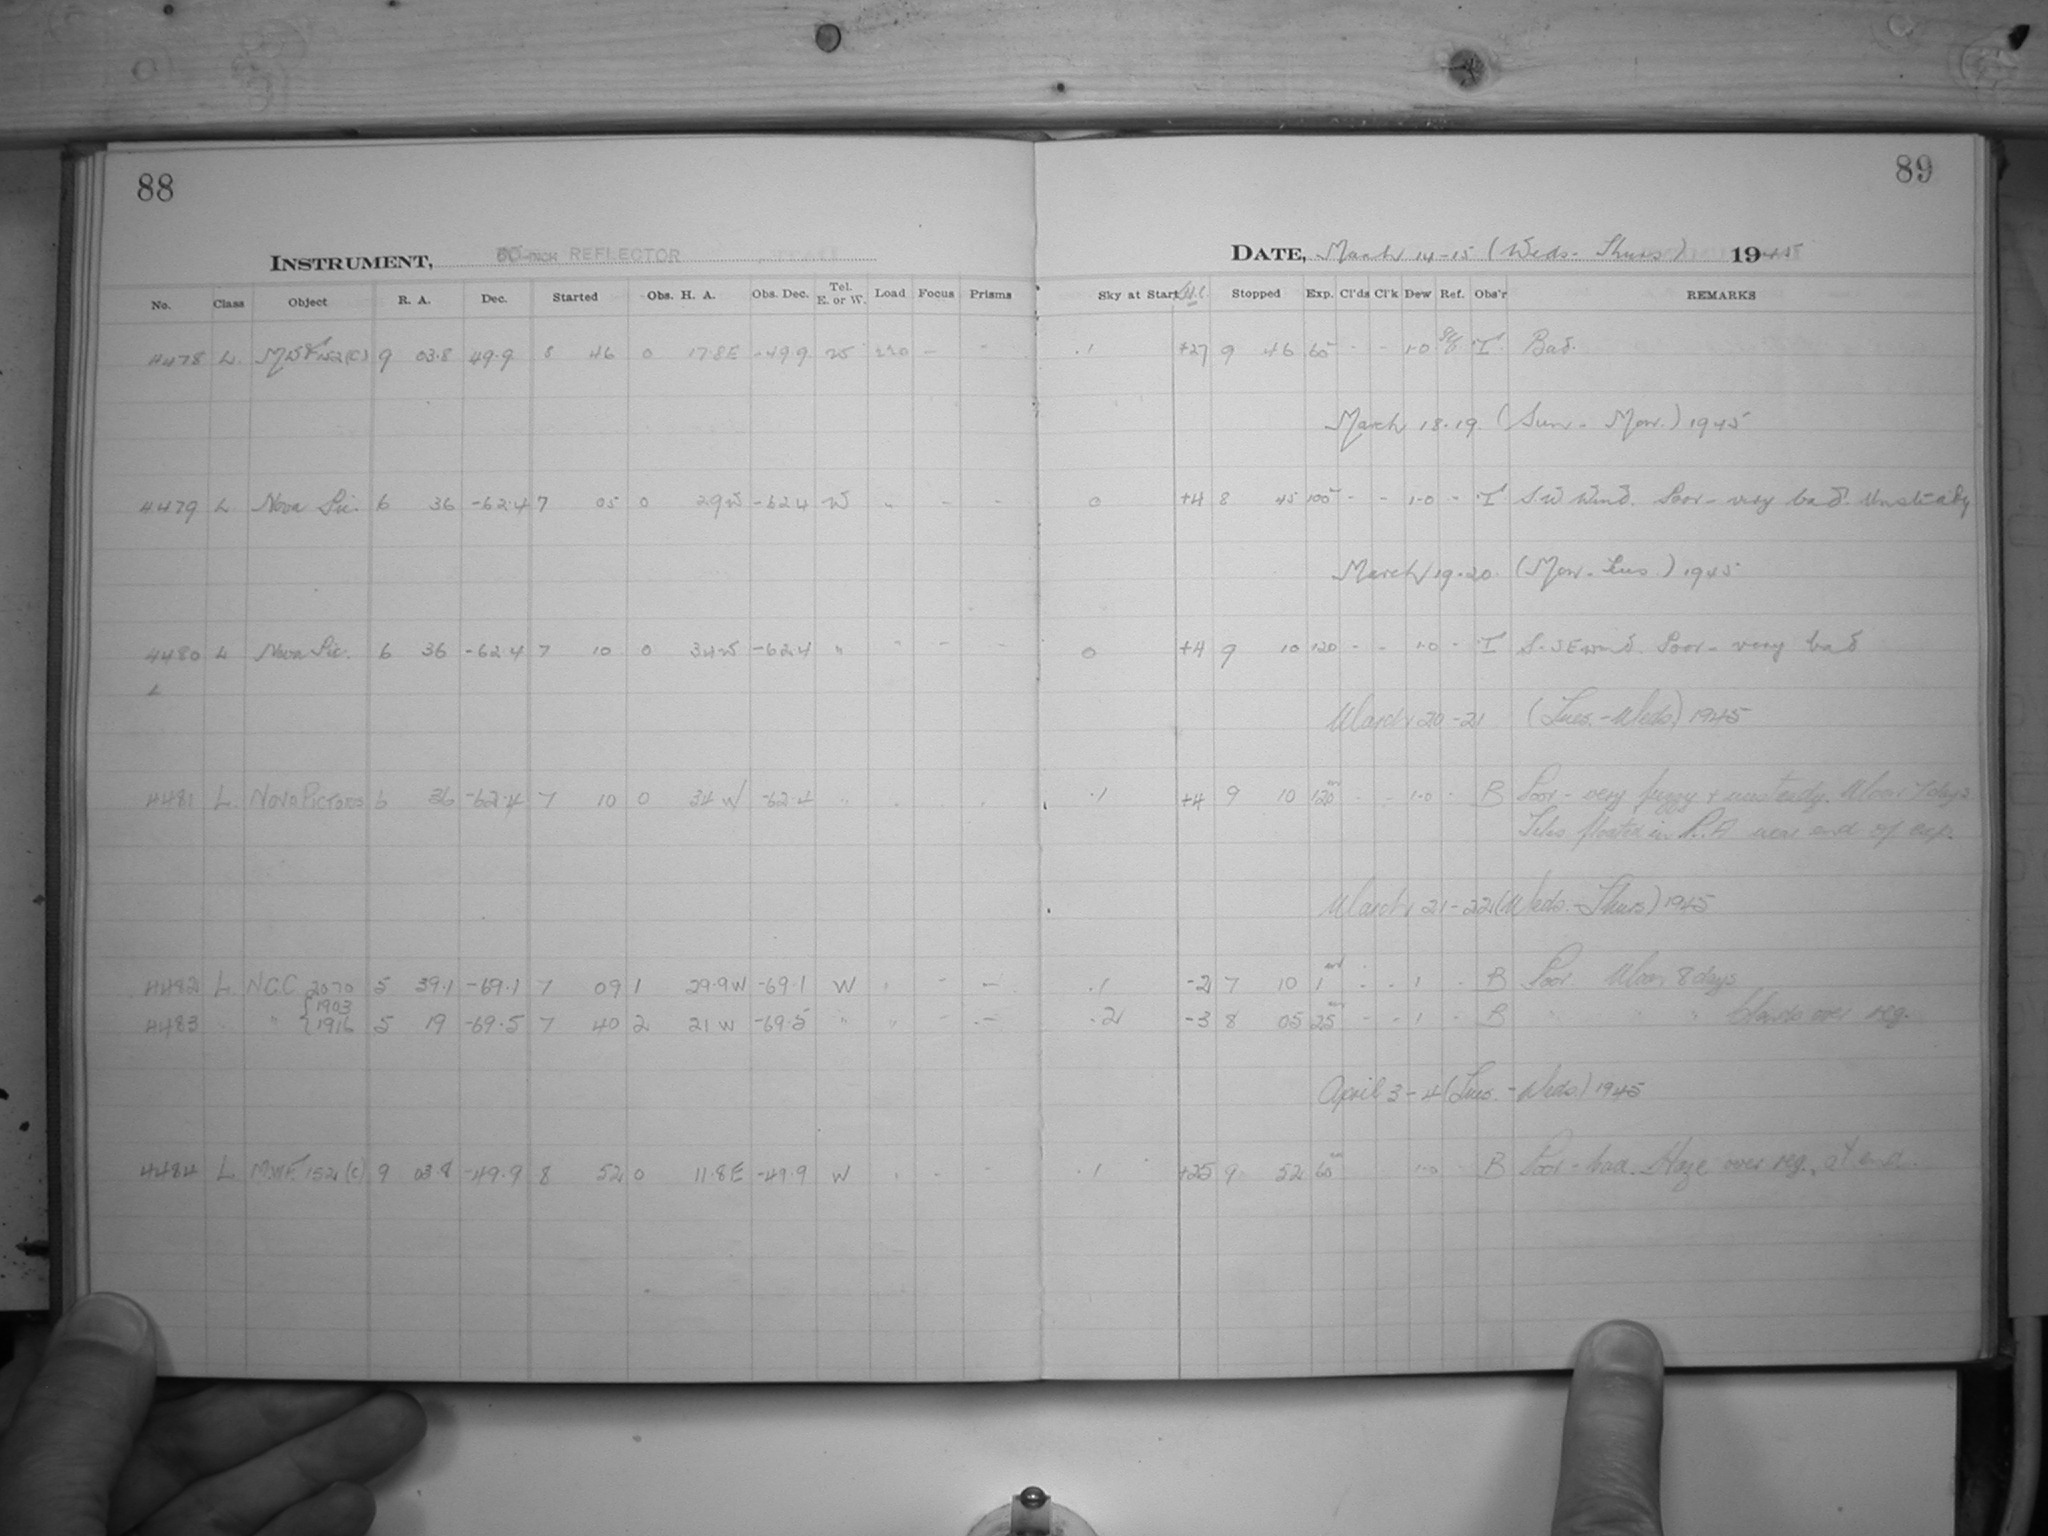 88
89
INSTRUMENT, 60-INCH REFLECTOR
DATE, March 14-15 (Weds - Thurs) 1945
No. Class Object R. A. Dec. Started Obs. H. A. Obs. Dec. Tel. E. or W. Load Focus Prisms Sky at Start Stopped Exp. Cl'ds Cl'k Dew Ref. Obs'r REMARKS
4478 L. MWF 152(C) 9 03.8 49.9 8 46 0 17.8E -49.9 W - - .1 +27 9 46 60 - - 1.0 T Bad.
March 18-19 (Sun - Mon.) 1945
4479 L Nova Pic. 6 36 -62.4 7 05 0 29W -62.4 W " - - 0 +4 8 45 100 - - 1.0 - T S.W Wind. Poor - very bad. Unsteady
March 19-20. (Mon - Tues.) 1945
4480 L Nova Pic. 6 36 -62.4 7 10 0 34W -62.4 " " - - 0 +4 9 10 120 - - 1.0 - T S-SE wind. Poor - very bad
L
March 20-21 (Tues. - Weds) 1945
4481 L. Nova Pictoris 6 36 -62.4 7 10 0 34 W -62.4 " .1 +4 9 10 120 - - 1.0 - B Poor - very fuzzy + unsteady. Moon 7 days
in R.A near end of exp.
March 21-22 (Weds. - Thurs) 1945
4482 L. N.G.C. 2070 5 39.1 -69.1 7 09 1 29.9W -69.1 W " - - .1 -2 7 10 1 - - 1 - B Poor Moon 8 days
4483 " " {1903 1916 5 19 -69.5 7 40 2 21 W -69.5 " " - - .2 -3 8 05 25 - - 1 - B " " " Clouds over reg.
April 3-4 (Tues. - Weds) 1945
4484 L MWF 152 (C) 9 03.8 -49.9 8 52 0 11.8E -49.9 W " - - .1 +25 9 52 60 1.0 B Poor - bad. Haze over reg. at end.